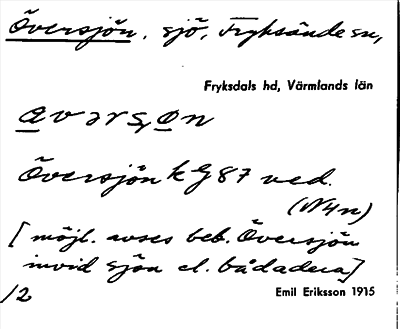 Översjön, sjö, Fryksände sn,
Fryksdals hd, Värmlands län
Översjön k G 87 ved.
(N4n)
[möjl. avses beb. Översjön
invid sjön el. bådadera]
12
Emil Eriksson 1915